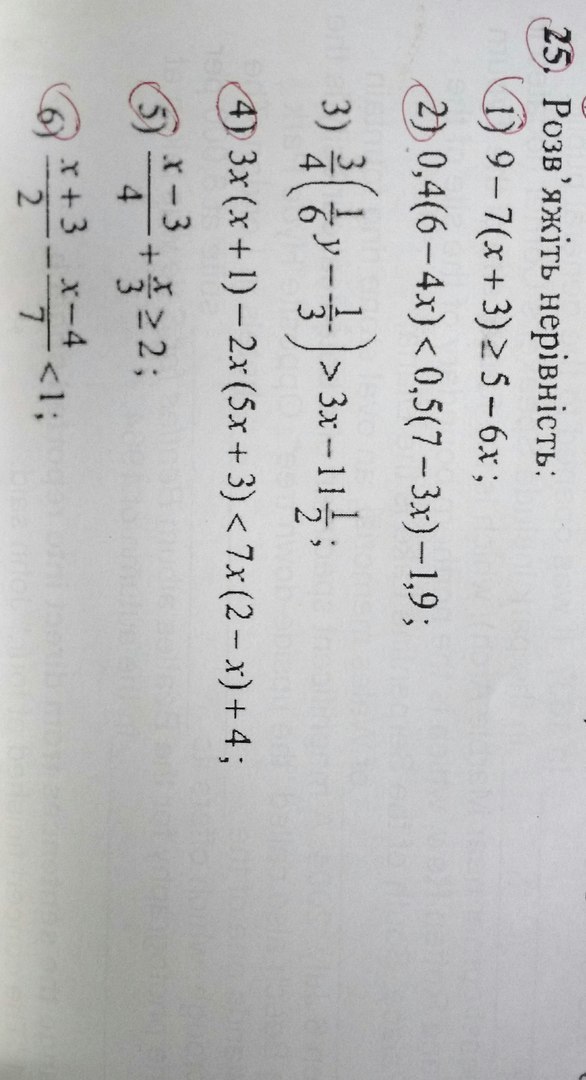 25. Розв’яжіть нерівність:
1) 9 – 7(x + 3) ≥ 5 – 6x;
2) 0,4(6 – 4x) < 0,5(7 – 3x) – 1,9;
3) 3/4(1/6 y – 1/3) > 3x – 11 1/2;
4) 3x(x + 1) – 2x(5x + 3) < 7x(2 – x) + 4;
5) (x – 3)/4 + x/3 ≥ 2;
6) (x + 3)/2 – (x – 4)/7 < 1;